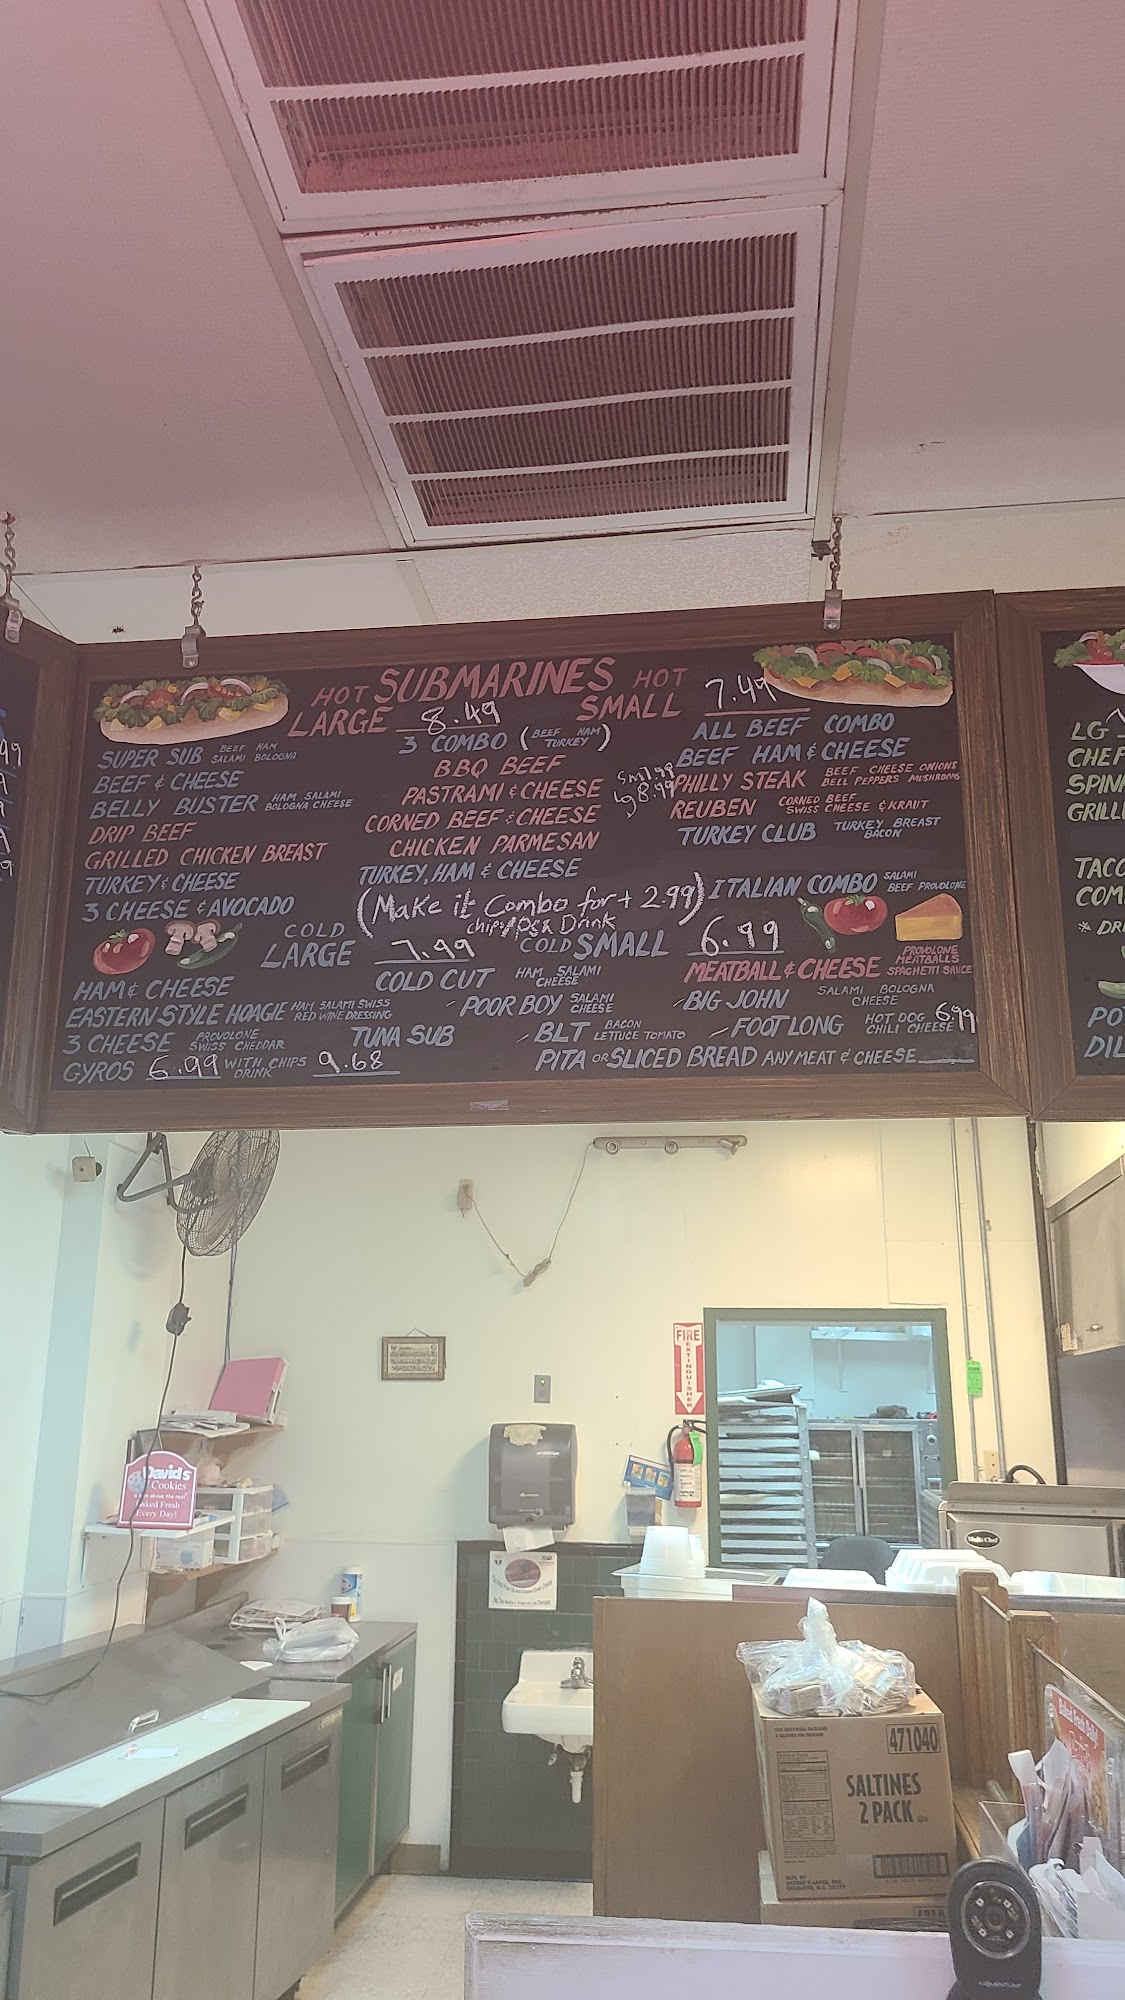 HOT SUBMARINES HOT
LARGE 8.49 SMALL 7.49
SUPER SUB BEEF HAM SALAMI BOLOGNA
BEEF & CHEESE
BELLY BUSTER HAM SALAMI BOLOGNA CHEESE
DRIP BEEF
GRILLED CHICKEN BREAST
TURKEY & CHEESE
3 CHEESE & AVOCADO
3 COMBO (BEEF HAM TURKEY)
BBQ BEEF
PASTRAMI & CHEESE
CORNED BEEF & CHEESE
CHICKEN PARMESAN
TURKEY, HAM & CHEESE
ALL BEEF COMBO
BEEF HAM & CHEESE
Sm 7.99
Lg 8.99
PHILLY STEAK BEEF CHEESE ONIONS BELL PEPPERS MUSHROOMS
REUBEN CORNED BEEF SWISS CHEESE & KRAUT
TURKEY CLUB TURKEY BREAST BACON
ITALIAN COMBO SALAMI BEEF PROVOLONE
(Make it Combo for + 2.99)
chips Drink
COLD LARGE 7.99 COLD SMALL 6.99
HAM & CHEESE
COLD CUT HAM SALAMI CHEESE
MEATBALL & CHEESE PROVOLONE MEATBALLS SPAGHETTI SAUCE
EASTERN STYLE HOAGIE HAM SALAMI SWISS RED WINE DRESSING
POOR BOY SALAMI CHEESE
BIG JOHN SALAMI BOLOGNA CHEESE
3 CHEESE PROVOLONE SWISS CHEDDAR
TUNA SUB
BLT BACON LETTUCE TOMATO
FOOT LONG HOT DOG CHILI CHEESE 6.99
GYROS 6.99 WITH CHIPS DRINK 9.68
PITA OR SLICED BREAD ANY MEAT & CHEESE
LG
CHEF
SPIN
GRILL
TACO
COM
* DR
PO
DIL
FIRE
EXTINGUISHER
David's
Cookies
Baked Fresh
Every Day!
Multi Chef
471040
SALTINES
2 PACK